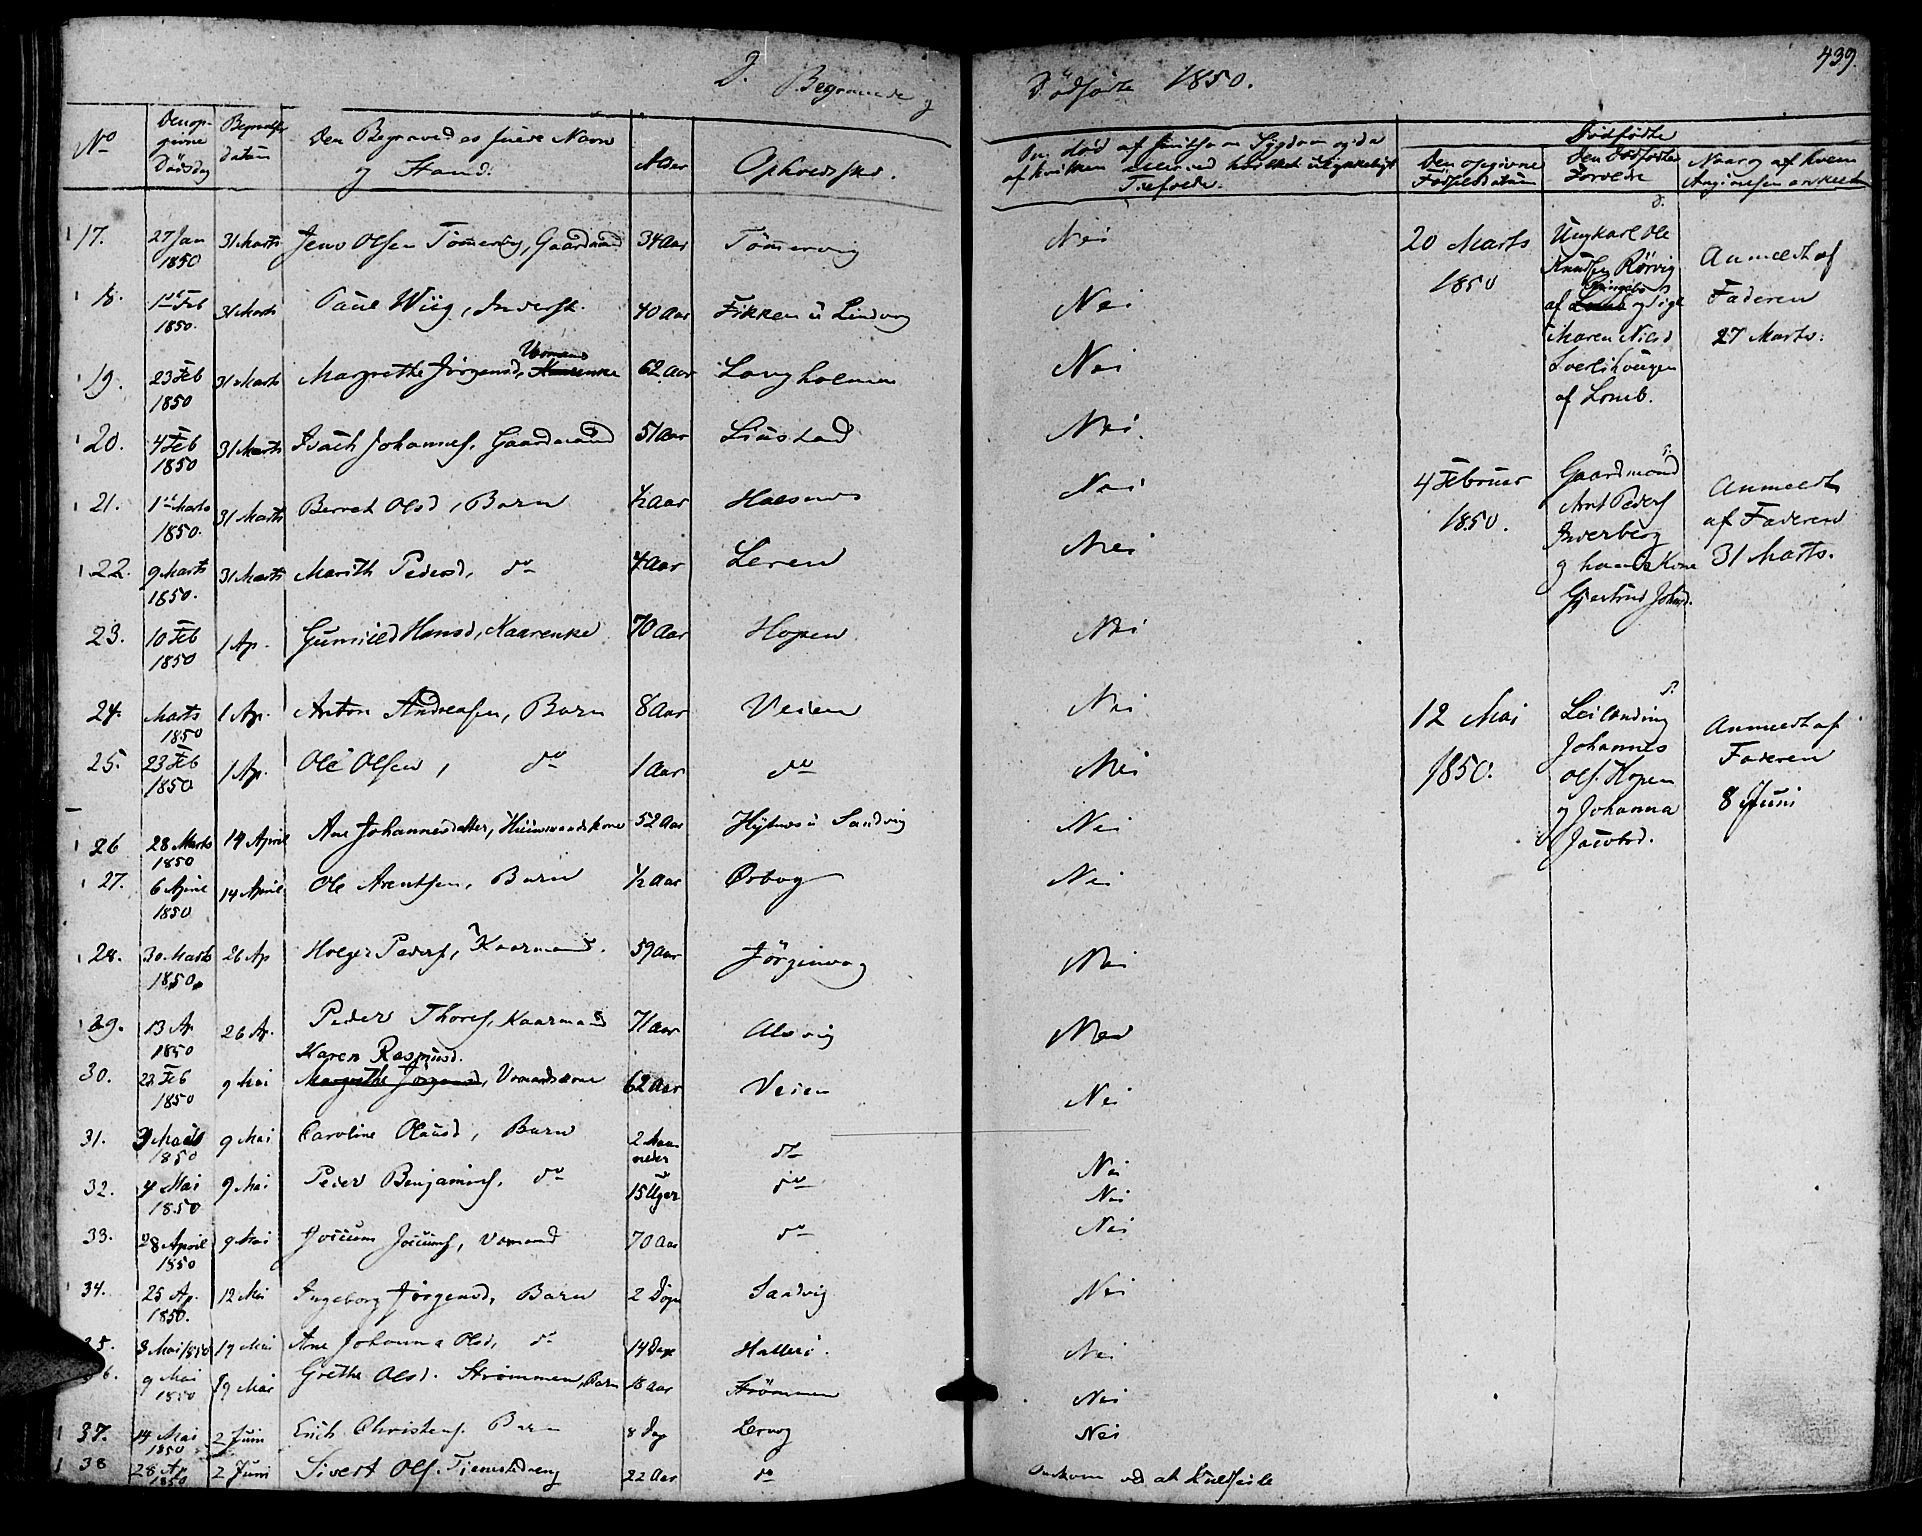 439.
D. Begravede og Dödfödte 1850.
No
Den opgivne Dödsdag
Begravelses datum
Den Begravedes fulde Navn og Stand.
Alder
Opholdssted.
Dödfödte
Den opgivne Födselsdatum
Den Dödfödtes Forældre
Naar og af hvem Angivelsen er skeet
17. 27 Jan 1850 31 Marts Jens Olsen Tömmervig, Gaardmand 34 Aar Tömmervig Nei
18. 1ste Feb 1850. 31 Marts Paul Wiig, Inderst. 40 Aar Fikken u Lindvog Nei
19. 23 Feb 1850 31 Marts Margrethe Jörgensd, 62 Aar Langholmen Nei
20. 4 Feb 1850 31 Marts Isach Johannes. Gaardmand 51 Aar Liustad Nei.
21. 1ste Marts 1850. 31 Marts Berret Olsd, Barn 1/2 Aar Halsenes Nei
22. 9 Marts 1850. 31 Marts Marith Pedersd, do 4 Aar Leren Nei
23. 10 Feb 1850 1 Ap. Gunnild Hansd, Kaarenke 70 Aar Hopen Nei
24. Marts 1850 1 Ap. Anton Andreasen, Barn 8 Aar Veien Nei
25. 23 Feb 1850. 1 Ap. Ole Olsen, do 1 Aar do Nei
26 28 Marts 1850 14 April Ane Johannesdatter, Huusmandskone 52 Aar Hylnes u Sandvig Nei
27. 6 April 1850 14 April Ole Arentsen, Barn 1/2 Aar Orvog Nei
28. 30 Marts 1850. 26 Ap Holger Peders, Kaarmand. 59 Aar Jörgenvog Nei
29. 13 Ap 1850 26 Ap. Peder Thores, Kaarmand 71 Aar Alsvig Nei
Karen Rasmusd.
30. 22 Feb 1850 9 Mai Margrethe Jörgensd, 62 Aar Veien Nei
31. 3 Marts 1850 9 Mai Caroline Olausd, Barn 2 Maaneder do Nei
32. 4 Mai 1850 9 Mai Peder Benjamins, do 15 Uger do Nei
33. 28 April 1850 9 Mai Jocum Jocums, 70 Aar do Nei
34. 25 Ap. 1850. 12 Mai Ingeborg Jörgensd, Barn 2 Dögn Sandvig Nei
35. 3 Mai 1850 19 Mai Ane Johanna Olsd, do 14 Dage Hallerö. Nei
36. 9 Mai 1850 19 Mai Grethe Olsd. Strömmen, Barn Aar Strömmen Nei
37. 14 Mai 1850 2 Juni Erich Christens. Barn 8 Dag Lervog Nei
38 28 Ap 1850 2 Juni Sivert Ols. 22 Aar do Omkom ved at kuldseile
20 Marts 1850
Ungkarl Ole
Knudsen Rörvig
af og Pige
Maren Nilsd
af Lomb.
Anmeldt af
Faderen
27 Marts.
4 Februar 1850.
Gaardmand
Arnt Peders
Inderberg
og hans Kone
Gjertrud Johnsd.
Anmeldt
af Faderen
31 Marts.
12 Mai 1850.
Leilænding
Johannes
Ols. Hopen
og Johanna
Jacobsd.
Anmeldt af
Faderen
8 Juni